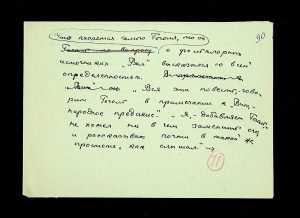 Что касается самого Гоголя, то он 90
Гоголь по вопросу о фольклорных
источниках "Вия" высказался со всей
определенностью.
"Вся эта повесть, гово-
рит Гоголь в примечании к "Вию", -
народное предание". "Я, - добавляет Гоголь, -
не хотел ни в чем изменить его
и рассказываю почти в такой же
простоте, как слышал"
11